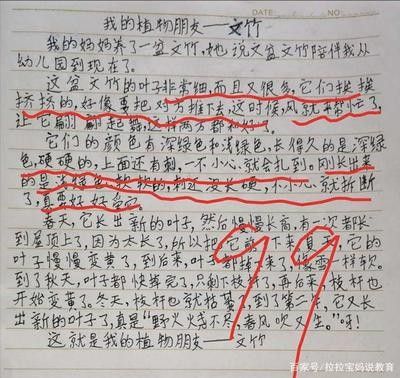 我的植物朋友——文竹
我的妈妈养了一盆文竹,她说文盆文竹陪伴我从
幼儿园到现在了。
这盆文竹的叶子非常细,而且又很多,它们挨挨
挤挤的,好像要把对方推下去,这时候,风就来帮忙了,
让它翩翩起舞,这样两方都和好了。
它们的颜色有深绿色和浅绿色,长得久的是深绿
色,硬硬的,上面还有刺,一不小心就会扎到。刚长出来
的是浅绿色,软软的,刺还没长硬,不小心就折断
了,真要好好
春天,它长出新的叶子,然后慢慢长高,有一次都长
到屋顶上了,因为太长了,所以把它 下来 它的
叶子慢慢变黄了,到后来,叶子都掉 来了,像雪一样软。
到了秋天,叶子都快掉完了,只剩下枝杆了,再后来,枝杆也
开始变黄了。冬天,枝杆也就枯萎 到了第二年,它又长
出新的叶子了,真是“野火烧不尽,春风吹又生。”呀!
这就是我的植物朋友——文竹
99
百家号/拉拉宝妈说教育